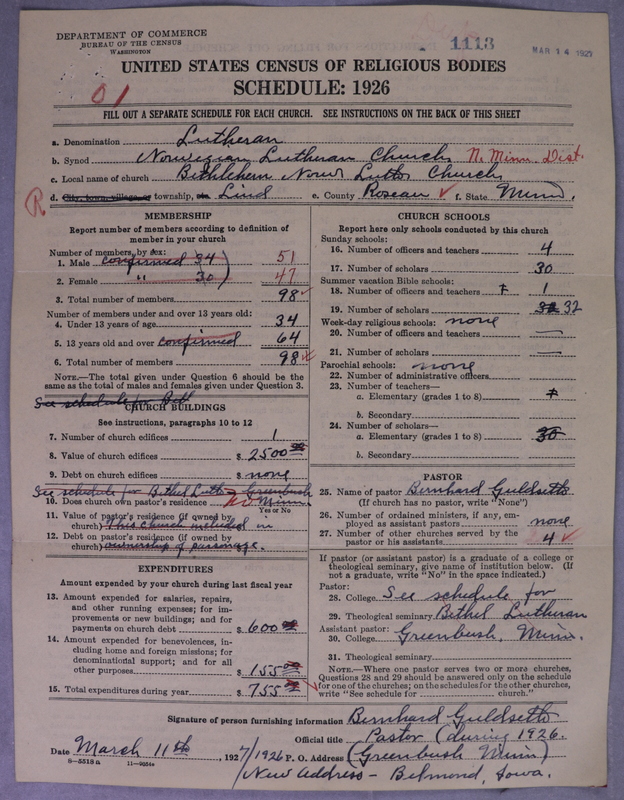 DEPARTMENT OF COMMERCE
BUREAU OF THE CENSUS
WASHINGTON
1113
MAR 14 1927
UNITED STATES CENSUS OF RELIGIOUS BODIES
SCHEDULE: 1926
01
FILL OUT A SEPARATE SCHEDULE FOR EACH CHURCH. SEE INSTRUCTIONS ON THE BACK OF THIS SHEET
a. Denomination Lutheran
b. Synod Norwegian Lutheran Church N. Minn. Dist.
c. Local name of church Bethlehem Norw Luth Church
R
d. City, town, village, or township, Lind e. County Roseau f. State Minn.
MEMBERSHIP
Report number of members according to definition of
member in your church
Number of members by sex:
1. Male confirmed 34 51
2. Female " 30 47
3. Total number of members 98
Number of members under and over 13 years old:
4. Under 13 years of age 34
5. 13 years old and over confirmed 64
6. Total number of members 98
NOTE.—The total given under Question 6 should be the
same as the total of males and females given under Question 3.
See schedule for Beth
CHURCH BUILDINGS
See instructions, paragraphs 10 to 12
7. Number of church edifices 1
8. Value of church edifices $ 2500
9. Debt on church edifices $ none
See schedule for Bethel Luth Greenbush
10. Does church own pastor's residence Minn
Yes or No
11. Value of pastor's residence (if owned by
church) This church included in
12. Debt on pastor's residence (if owned by
church) ownership of parsonage.
EXPENDITURES
Amount expended by your church during last fiscal year
13. Amount expended for salaries, repairs,
and other running expenses; for im-
provements or new buildings; and for
payments on church debt $ 600
14. Amount expended for benevolences, in-
cluding home and foreign missions; for
denominational support; and for all
other purposes $ 155 00
15. Total expenditures during year $ 755
CHURCH SCHOOLS
Report here only schools conducted by this church
Sunday schools:
16. Number of officers and teachers 4
17. Number of scholars 30
Summer vacation Bible schools:
18. Number of officers and teachers 1
19. Number of scholars 32 32
Week-day religious schools: none
20. Number of officers and teachers —
21. Number of scholars —
Parochial schools: none
22. Number of administrative officers
23. Number of teachers—
a. Elementary (grades 1 to 8)
b. Secondary
24. Number of scholars—
a. Elementary (grades 1 to 8) 30
b. Secondary
PASTOR
25. Name of pastor Bernhard Guldseth
(If church has no pastor, write "None")
26. Number of ordained ministers, if any, em-
ployed as assistant pastors none
27. Number of other churches served by the
pastor or his assistants 4
If pastor (or assistant pastor) is a graduate of a college or
theological seminary, give name of institution below. (If
not a graduate, write "No" in the space indicated.)
Pastor:
28. College See schedule for
29. Theological seminary Bethel Lutheran
Assistant pastor:
30. College Greenbush, Minn.
31. Theological seminary
NOTE.—Where one pastor serves two or more churches,
Questions 28 and 29 should be answered only on the schedule
for one of the churches; on the schedules for the other churches,
write "See schedule for church."
Signature of person furnishing information Bernhard Guldseth
Official title Pastor (during 1926.
Date March 11th, 1927/1926 P. O. Address (Greenbush Minn)
8—5518 a
New Address – Belmond, Iowa.